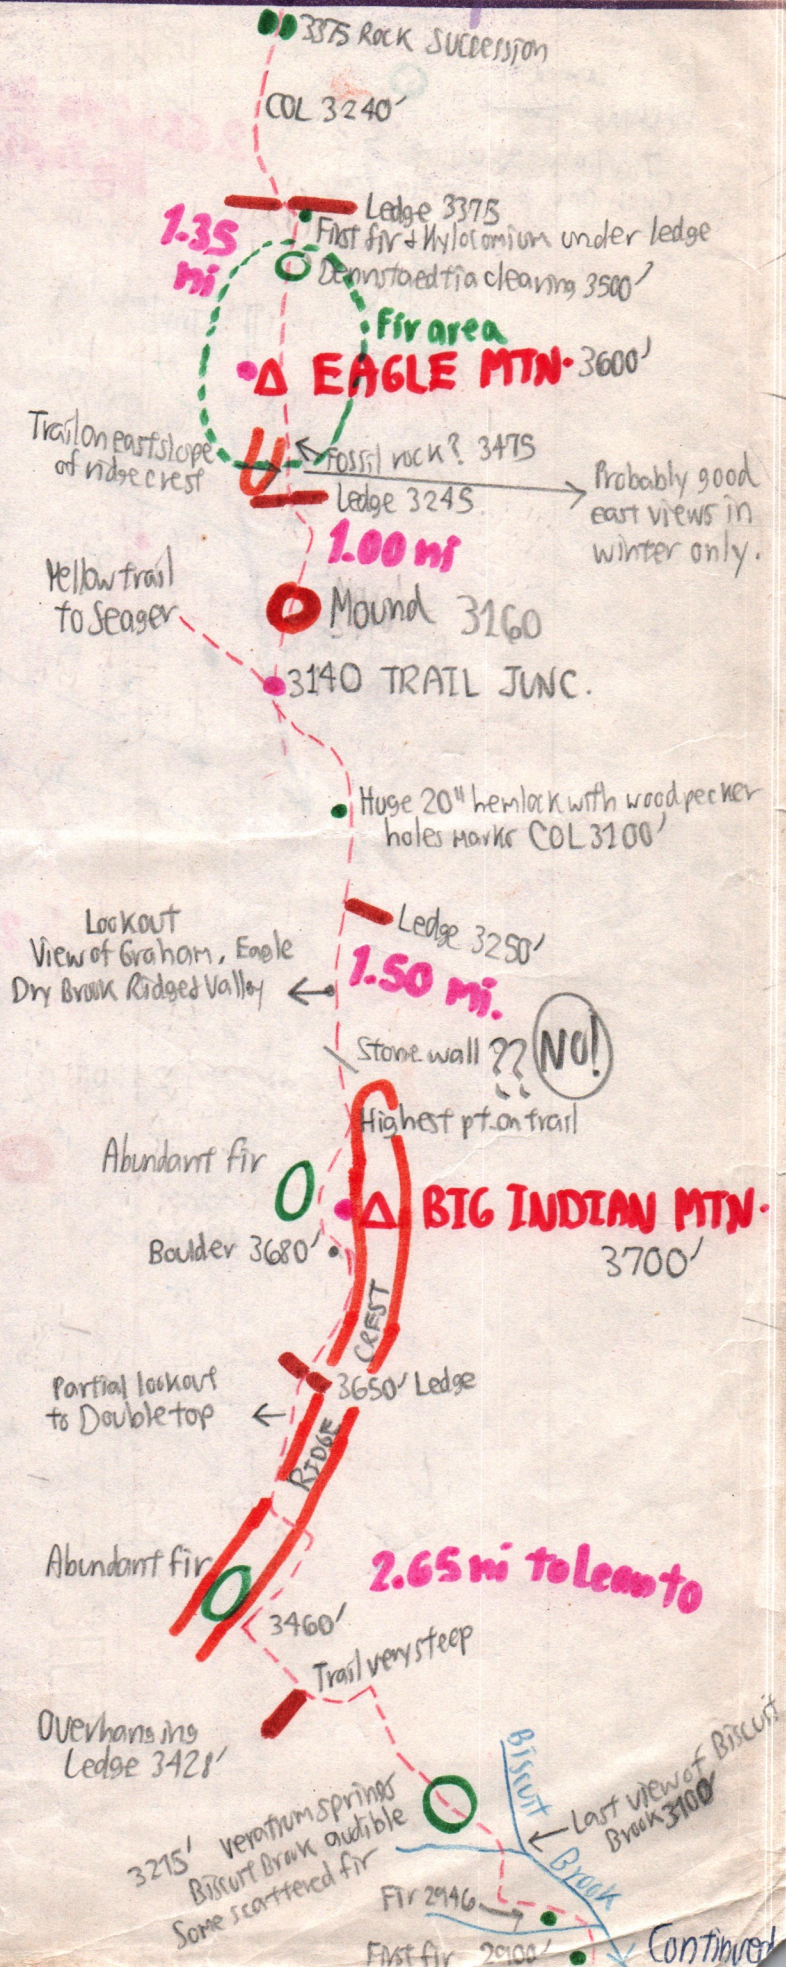 3375 Rock Succession
COL 3240'
Ledge 3375
1.35
mi
First fir & Hylocomium under ledge
Dennstaedtia clearing 3500'
Fir area
EAGLE MTN. 3600'
Trail on east slope
of ridge crest
Fossil rock? 3475
Ledge 3245
Probably good
east views in
winter only.
1.00 mi
Yellow trail
to Seager
Mound 3160
3140 TRAIL JUNC.
Huge 20" hemlock with woodpecker
holes marks COL 3100'
Ledge 3250'
Lookout
View of Graham, Eagle
Dry Brook Ridge & Valley
1.50 mi.
Stone wall ?? NO!
Highest pt. on trail
Abundant fir
BIG INDIAN MTN.
3700'
Boulder 3680'
CREST
Partial lookout
to Doubletop
3650' Ledge
RIDGE
Abundant fir
2.65 mi to leanto
3460'
Trail very steep
Overhanging
Ledge 3428'
Biscuit
Brook
Last view of Biscuit
Brook 3100'
3275' veratrum springs
Biscuit Brook audible
Some scattered fir
Fir 2946
First fir 2900'
Continued